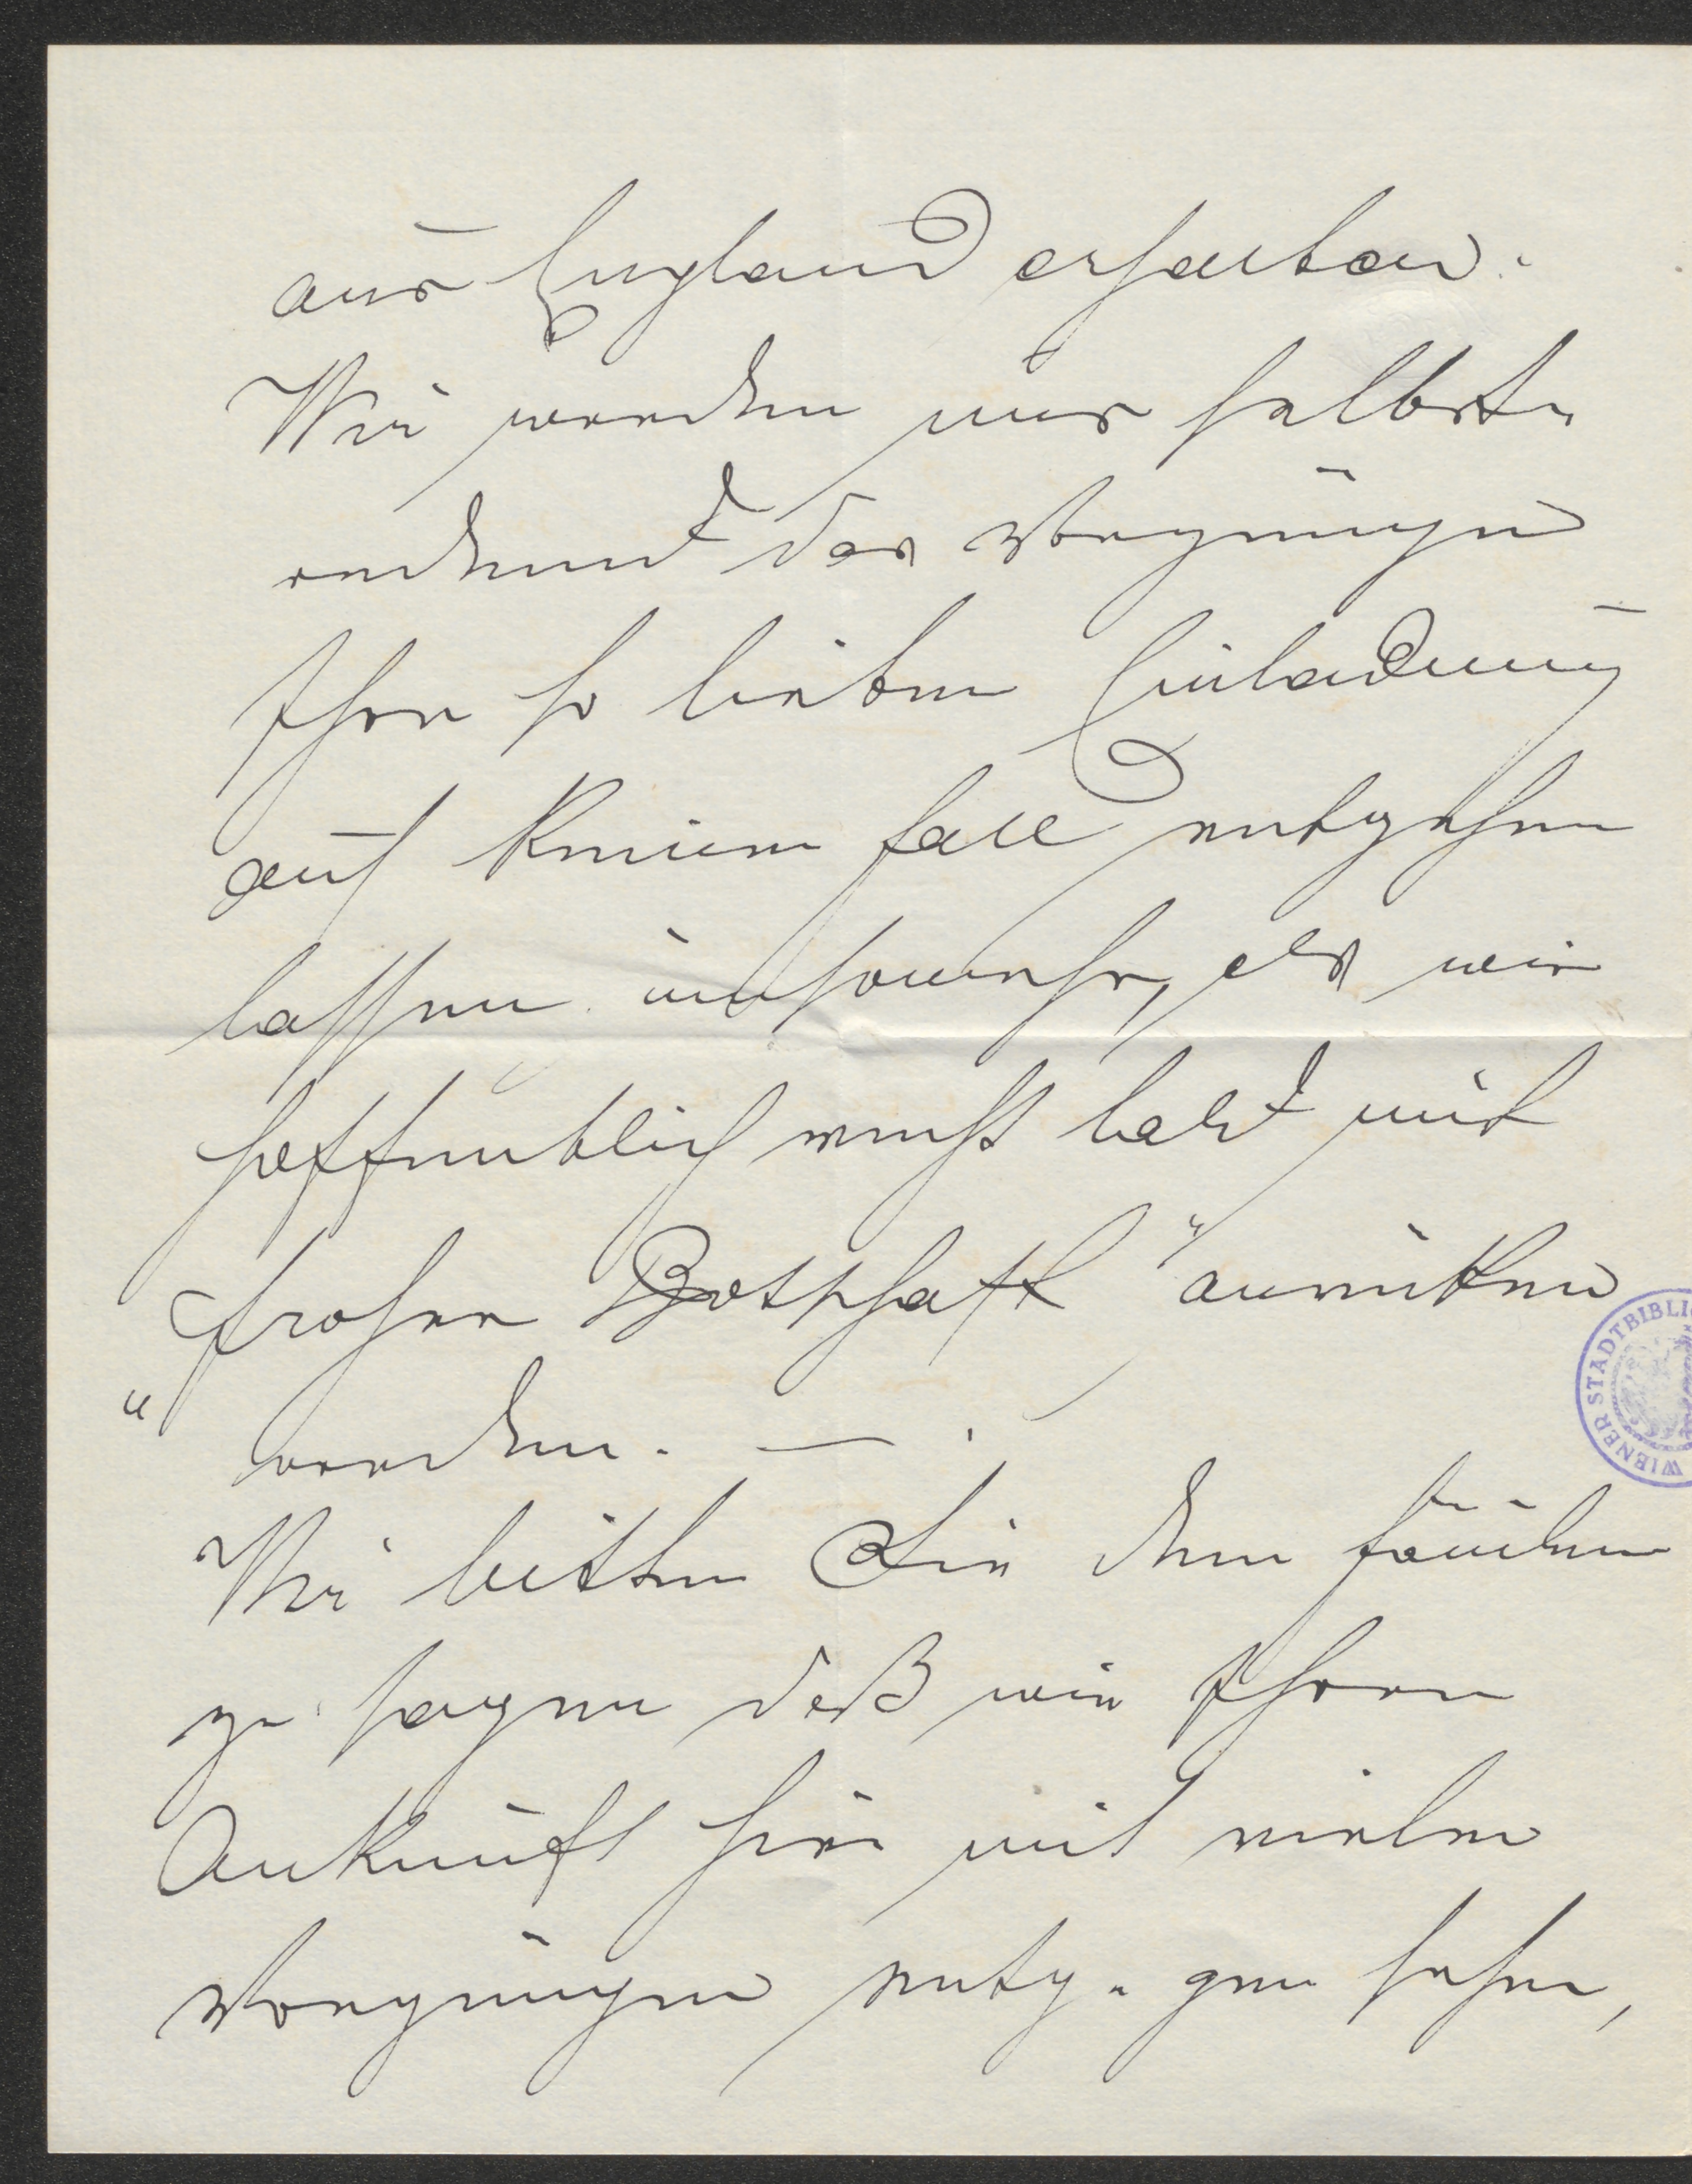 aus England erhalten.
Wir werden uns selbstv
erdend das Vergnügen
Ihrer so lieben Einladung
auf keinen Fall entgehen
lassen umsomehr, als wir
hoffentlich recht bald mit
froher Botschaft "anrücken
" werden. —
Wir bitten Sie den
zu sagen daß wir Ihrer
Ankunft hier mit vielem
Vergnügen entge-gen sehen,
WIENER STADTBIBLI